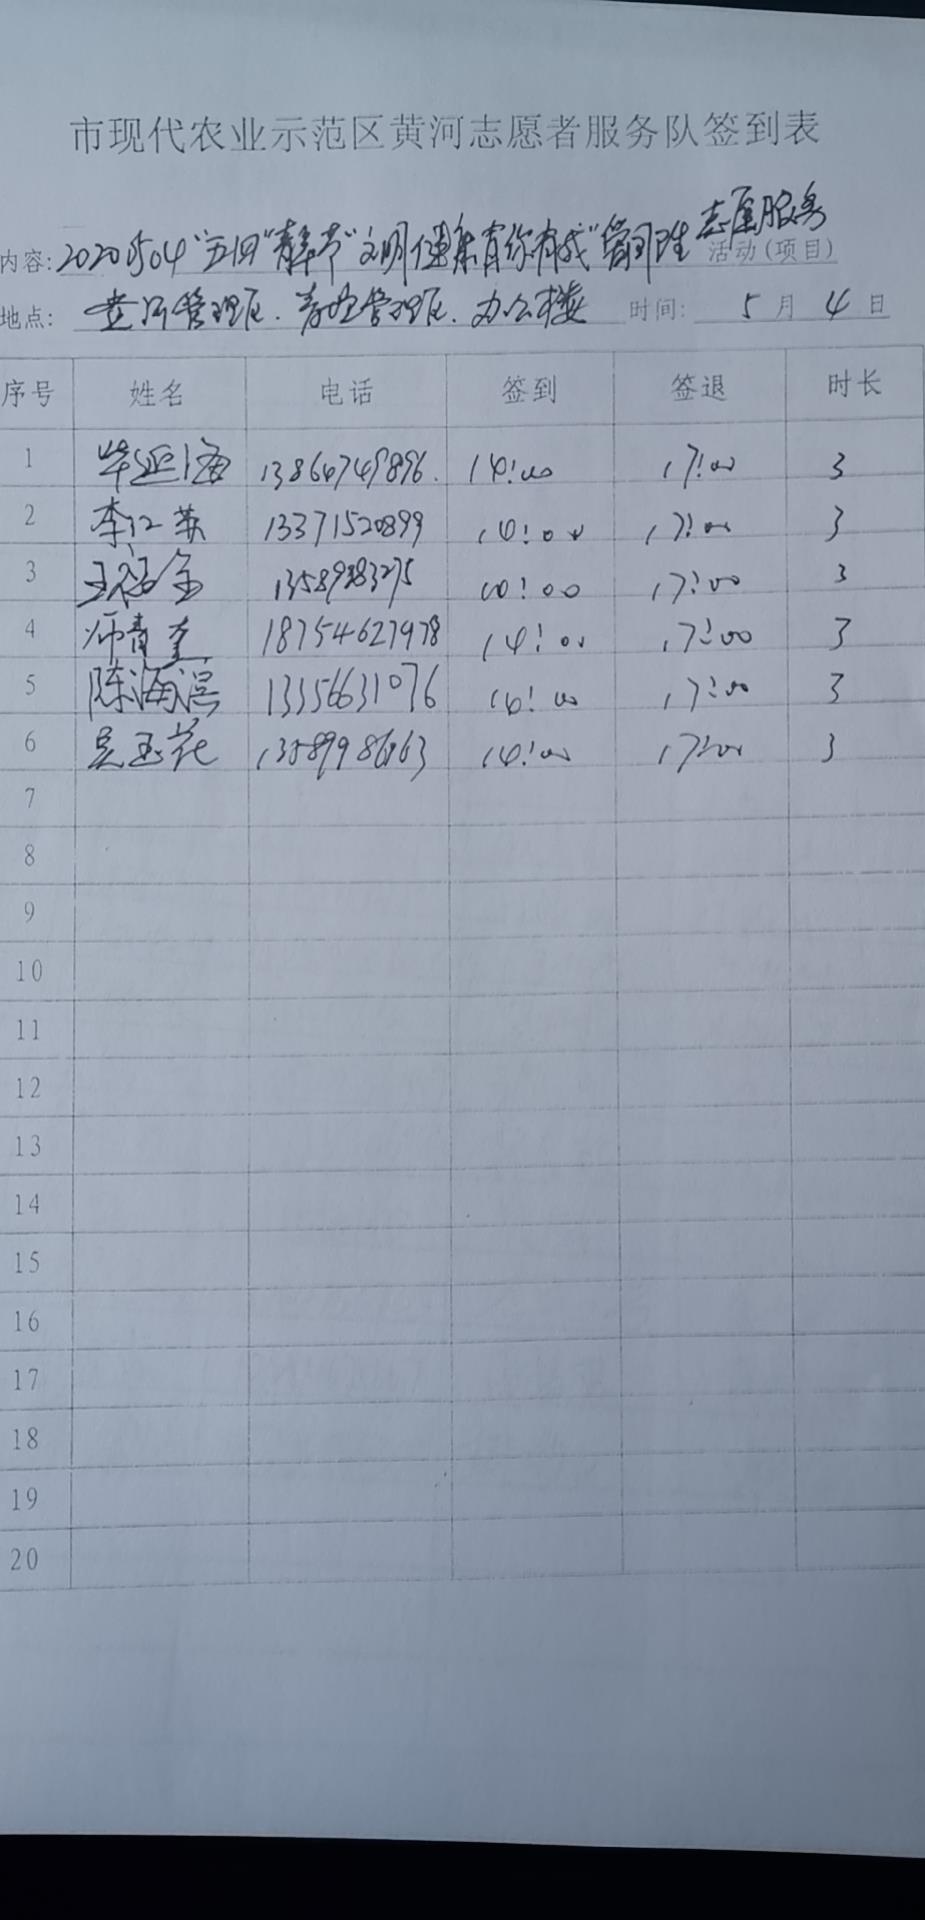 市现代农业示范区黄河志愿者服务队签到表
内容: 20200504 "五四"青年节"文明健康有你有我" 志愿服务 活动(项目)
地点: 黄河管理区. 管理区. 办公楼 时间: 5 月 4 日
序号 姓名 电话 签到 签退 时长
1 毕延海 13864749896. 14:00 17:00 3
2 李红英 13371520899 14:00 17:00 3
3 王 金 13589983275 14:00 17:00 3
4 师青奎 18754627978 14:00 17:00 3
5 陈海滨 13356631076 14:00 17:00 3
6 吴玉花 13589986163 14:00 17:00 3
7
8
9
10
11
12
13
14
15
16
17
18
19
20